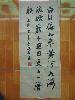 白日依山盡黄河入海
流欲窮千里目更上一層
樓